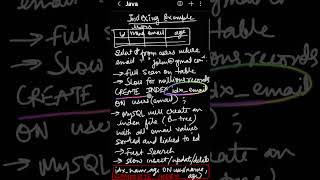 Java
Indexing Example
Users
id name email age
Select * from users where
email = "john@gmail.com"
→ Full Scan on table
→ Slow for millions records
CREATE INDEX idx_email
ON users(email);
→ MySQL will create an
index file (B-tree)
with all email values
sorted and linked to id
→ Fast Search
→ Slow insert/update/delete
idx_name_age ON users(name,
age)